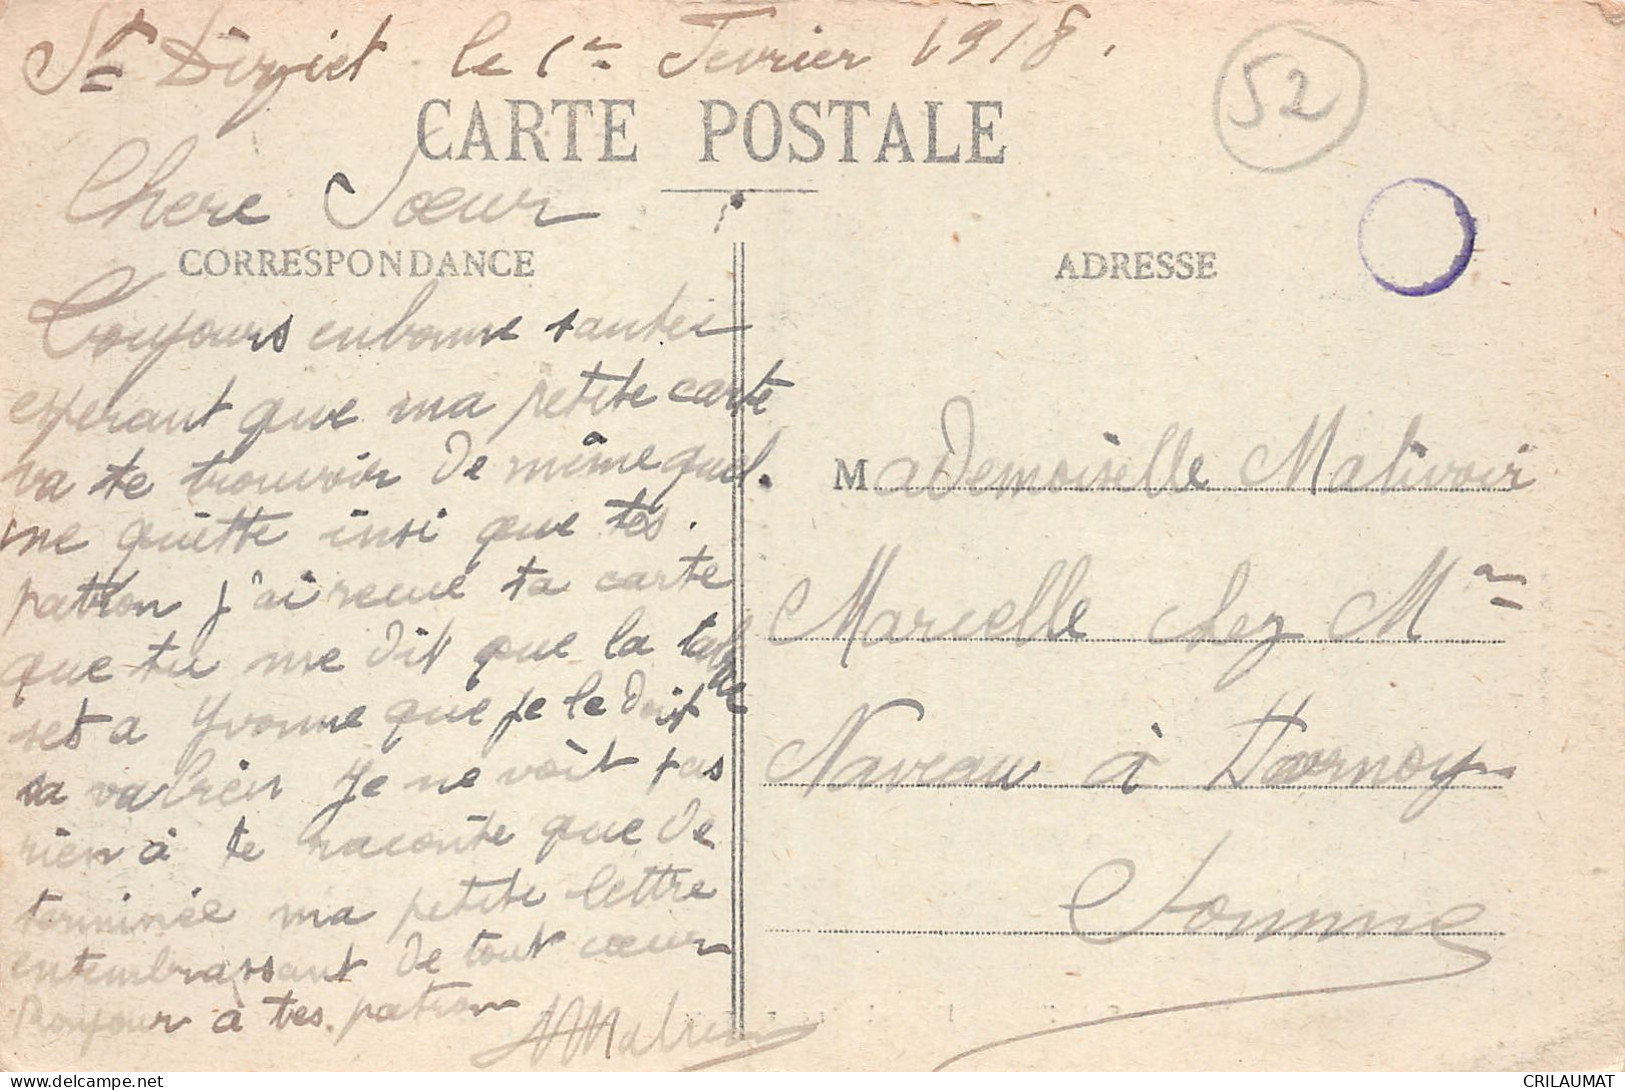 St Dizier le 1er Fevrier 1918.
52
CARTE POSTALE
Chere Sœur
CORRESPONDANCE
Toujours enbonne santer
esperant que ma petite carte
va te trouvoir de même quel.
me quitte insi que tes.
patron j'ai reçue ta carte
que tu me dit que la
set a Yvonne que je le doit
sa va bien Je ne voit pas
rien à te raconte que de
terminée ma petite lettre
entembrassant de tout cœur
Bonjour à tes patron
ADRESSE
Mademoiselle Malivoir
Marcelle chez Mr
Naveau à Hornoy
Somme
CRILAUMAT